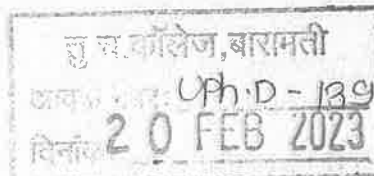 तु. च. कॉलेज, बारामती
आवक नंबर: UPh.D - 139
दिनांक 20 FEB 2023